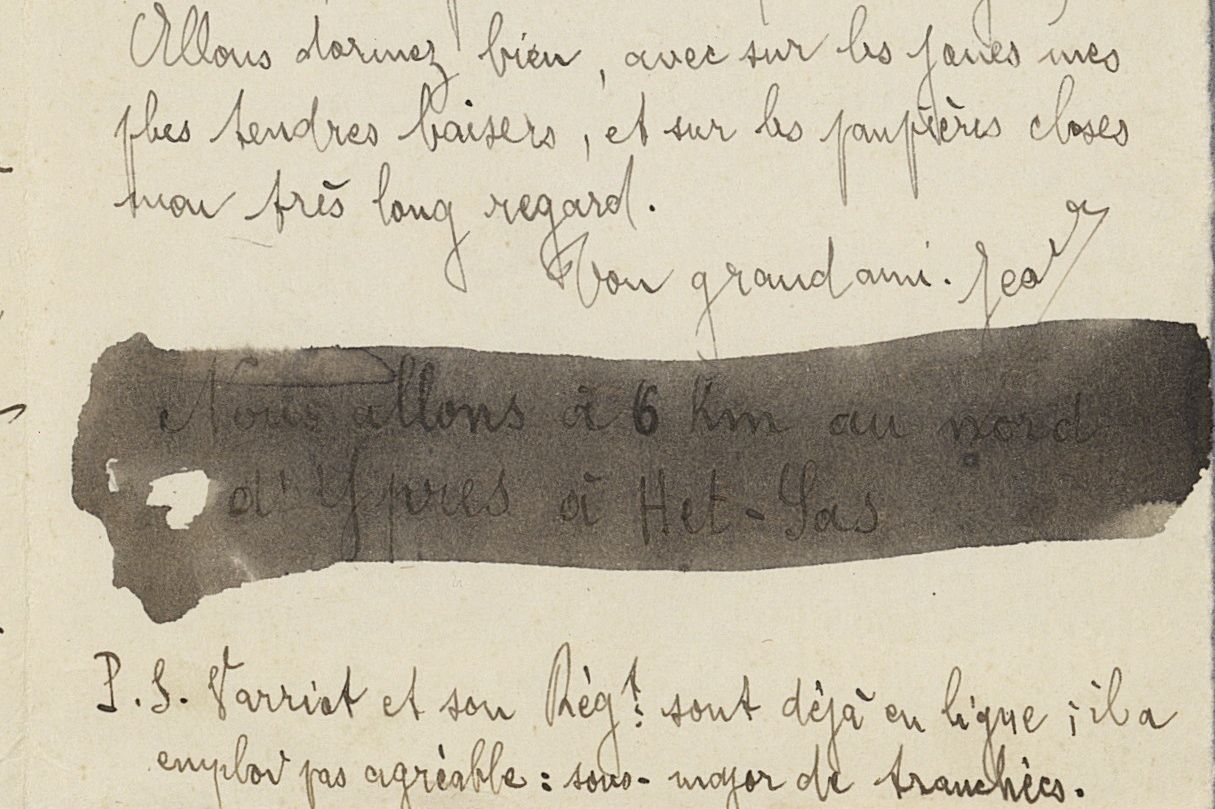 Allons dormez bien, avec sur les joues mes
plus tendres baisers, et sur les paupières closes
mon très long regard.
Von grand ami. Jean
Nous allons à 6 Km au nord
d'Ypres à Het-Sas
P.S. Varriot et son Rég.t sont déjà en ligne ; il a
emploi pas agréable : sous-major de tranchées.